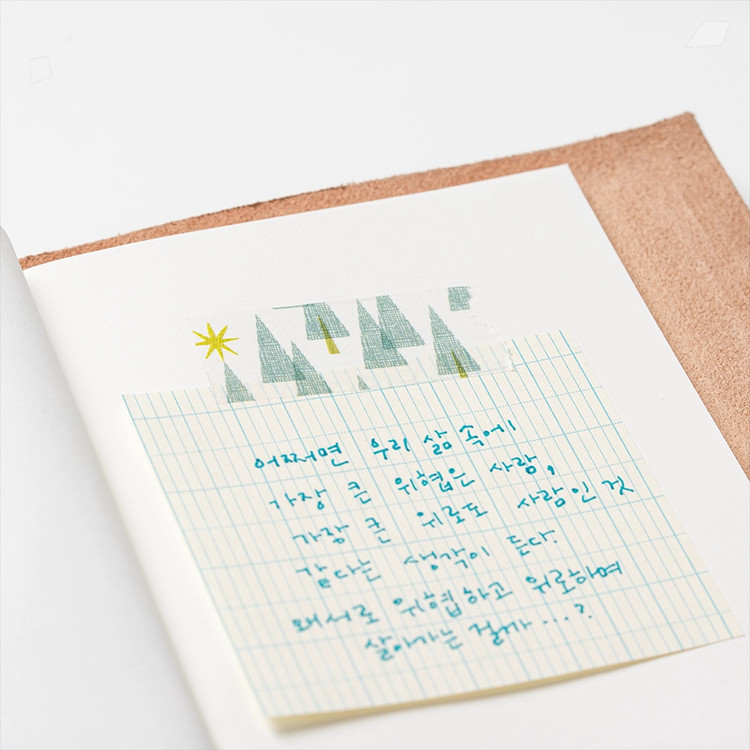 어쩌면 우리 삶 속에
가장 큰 위협은 사람,
가장 큰 위로도 사람인 것
같다는 생각이 든다.
왜 서로 위협하고 위로하며
살아가는 걸까...?